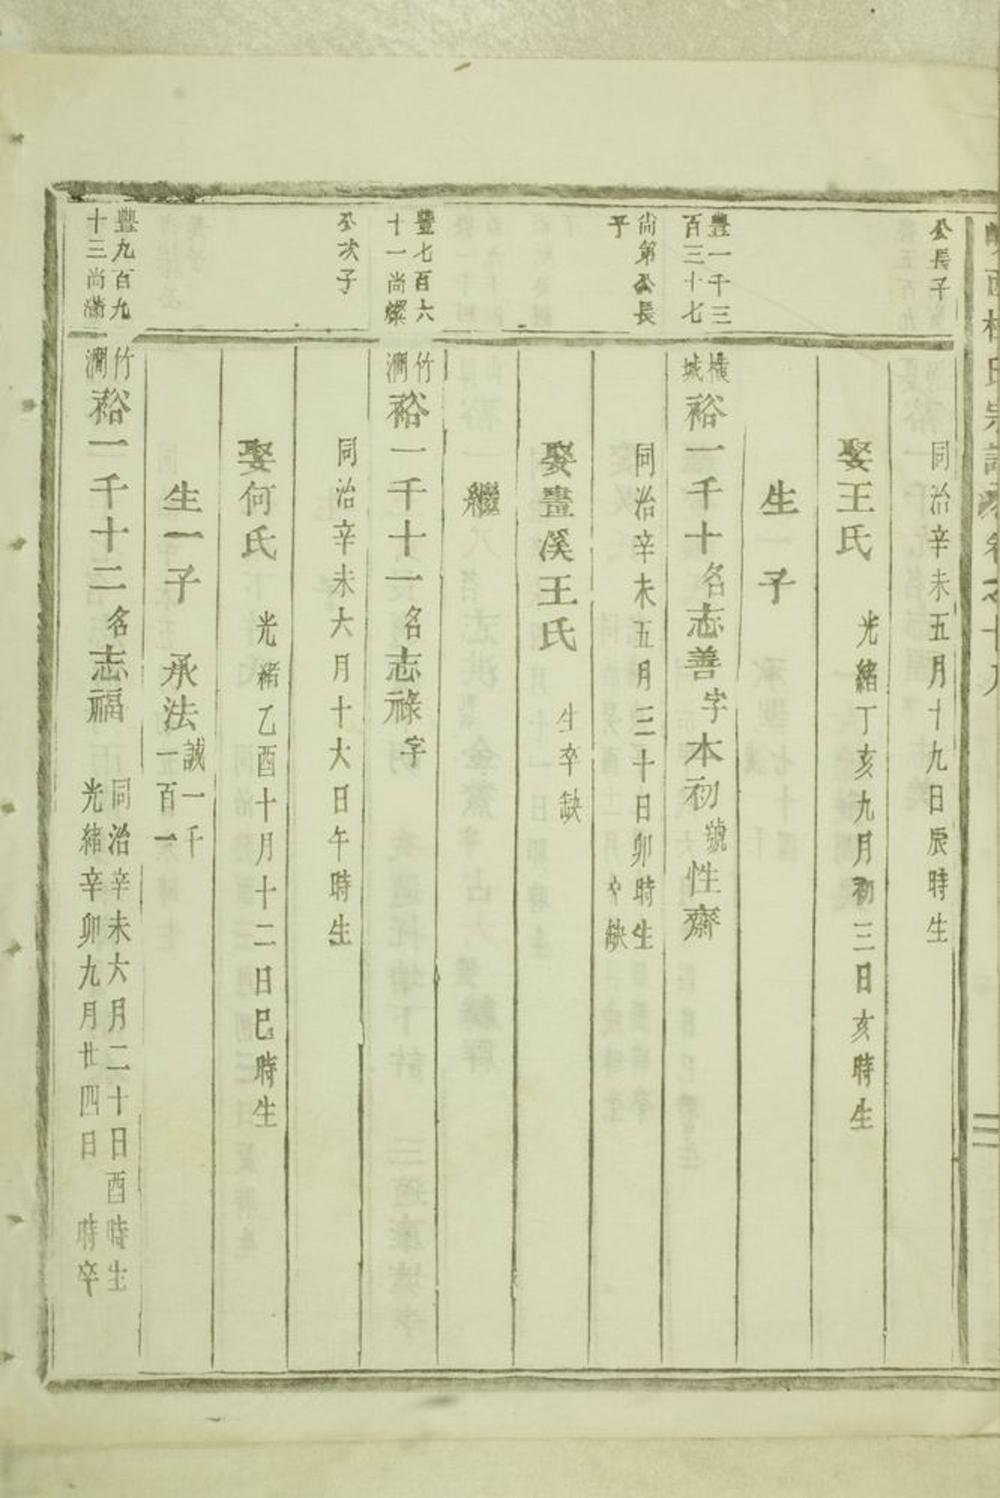 公長子
同治辛未五月十九日辰時生
娶王氏 光緒丁亥九月初三日亥時生
生 子
豐一千三
百三十七
橫城裕一千十名志善字本初號性齋
尚第公長
子
同治辛未五月三十日卯時生
卒缺
娶畫溪王氏 生卒缺
繼
豐七百六
十一尚燦
竹澗裕一千十一名志祿字
公次子
同治辛未六月十六日午時生
娶何氏 光緒乙酉十月十二日巳時生
生一子 承法誠一千
一五百一
豐九百九
十三尚滿
竹澗裕一千十二名志福 同治辛未六月二十日酉時生
光緒辛卯九月廿四日 時卒